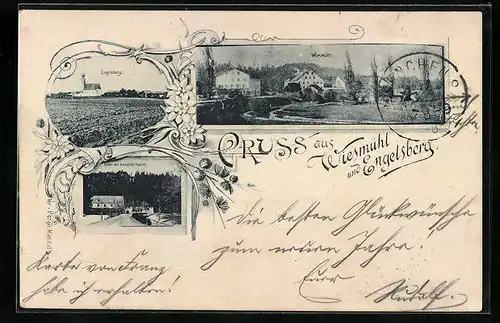 Engelsberg.
Wiesmühl.
GRUSS aus
Wiesmühl
und Engelsberg.
Die besten Glückwünsche
zum neuen Jahre.
Euer
Rudolf.
Karte von Franz
habe ich erhalten!